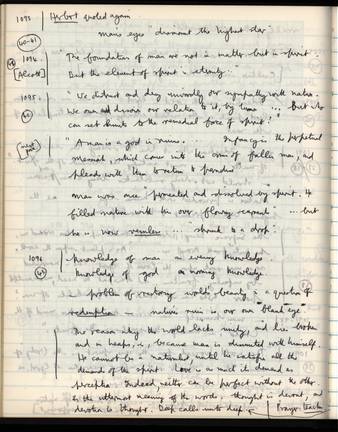 1093 Herbert quoted again
man's eyes dismount the highest star
60-61
1094. "The foundation of man are not in matter but in spirit.
[Alcott] But the element of spirit is eternity."
1095. "We distrust and deny inwardly our sympathy with nature.
We own and disown our relation to it, by turns ... But who
can set limits to the remedial force of spirit?"
"A man is a god in ruins. ... Infancy is the perpetual
messiah, which comes into the arms of fallen men, and
pleads with them to return to paradise"
man was once "permeated and dissolved by spirit. He
filled nature with his overflowing currents ... but
he is now ... shrunk to a drop."
1096 knowledge of man an evening knowledge
knowledge of God a morning knowledge
problem of restoring world's beauty is a question of
redemption - nature's ruin is in our own "blank eye"
The reason why the world lacks unity, and lies broken
and in heaps, is, because man is disunited with himself.
He cannot be a naturalist, until he satisfies all the
demands of the spirit. Love is as much its demand as
perception. Indeed neither can be perfect without the other.
In the uttermost meaning of the words, thought is devout, and
devotion is thought. Deep calls unto deep